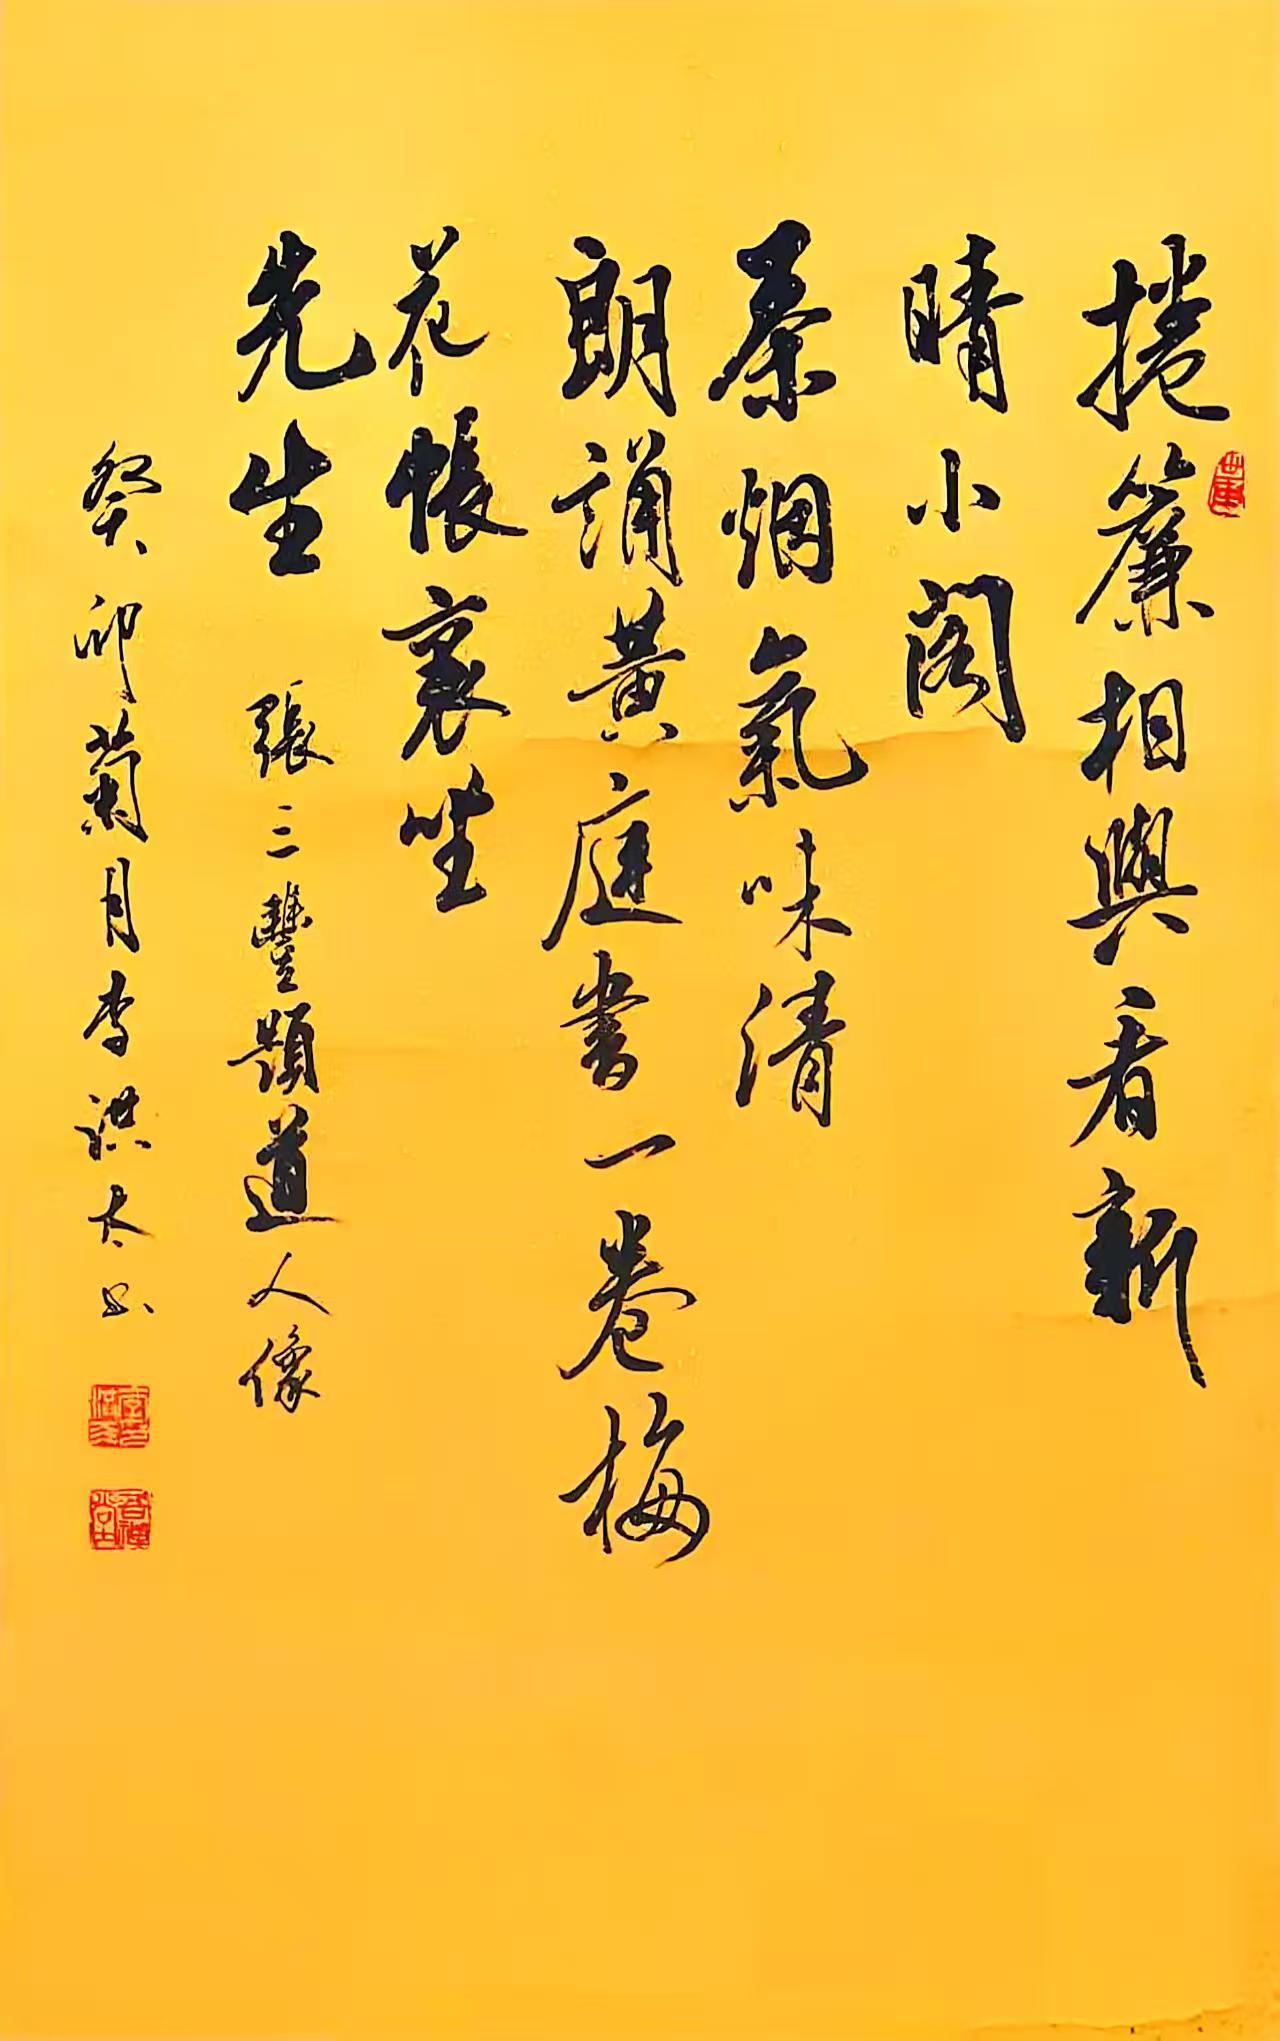 捲簾相與看新
晴小閣
秦烟氣味清
朗誦黃庭書一卷梅
花帳裏坐
先生
張三豐題道人像
癸卯菊月李洪太书